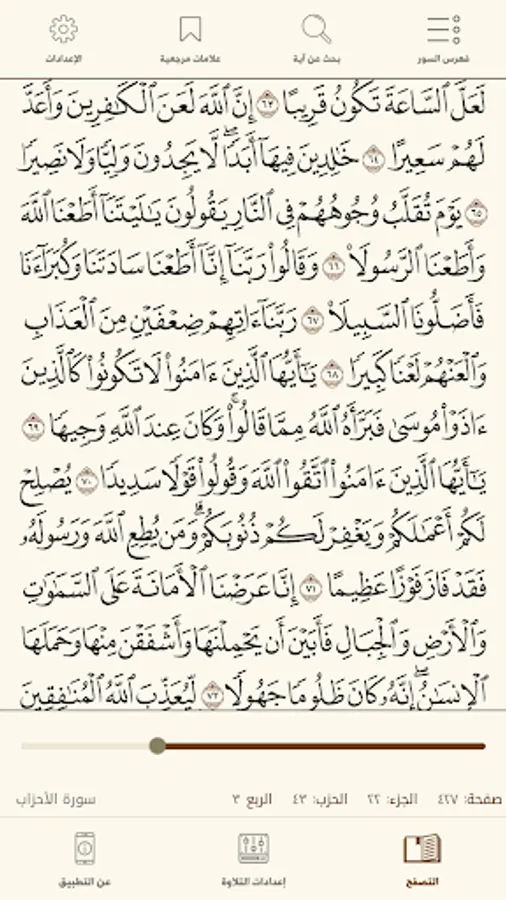 فهرس السور
بحث عن آية
علامات مرجعية
الإعدادات
لَعَلَّ ٱلسَّاعَةَ تَكُونُ قَرِيبًا ٦٣ إِنَّ ٱللَّهَ لَعَنَ ٱلْكَٰفِرِينَ وَأَعَدَّ
لَهُمْ سَعِيرًا ٦٤ خَٰلِدِينَ فِيهَآ أَبَدًا ۖ لَّا يَجِدُونَ وَلِيًّا وَلَا نَصِيرًا
٦٥ يَوْمَ تُقَلَّبُ وُجُوهُهُمْ فِى ٱلنَّارِ يَقُولُونَ يَٰلَيْتَنَآ أَطَعْنَا ٱللَّهَ
وَأَطَعْنَا ٱلرَّسُولَا۠ ٦٦ وَقَالُوا۟ رَبَّنَآ إِنَّآ أَطَعْنَا سَادَتَنَا وَكُبَرَآءَنَا
فَأَضَلُّونَا ٱلسَّبِيلَا۠ ٦٧ رَبَّنَآ ءَاتِهِمْ ضِعْفَيْنِ مِنَ ٱلْعَذَابِ
وَٱلْعَنْهُمْ لَعْنًا كَبِيرًا ٦٨ يَٰٓأَيُّهَا ٱلَّذِينَ ءَامَنُوا۟ لَا تَكُونُوا۟ كَٱلَّذِينَ
ءَاذَوْا۟ مُوسَىٰ فَبَرَّأَهُ ٱللَّهُ مِمَّا قَالُوا۟ ۚ وَكَانَ عِندَ ٱللَّهِ وَجِيهًا ٦٩
يَٰٓأَيُّهَا ٱلَّذِينَ ءَامَنُوا۟ ٱتَّقُوا۟ ٱللَّهَ وَقُولُوا۟ قَوْلًا سَدِيدًا ٧٠ يُصْلِحْ
لَكُمْ أَعْمَٰلَكُمْ وَيَغْفِرْ لَكُمْ ذُنُوبَكُمْ ۗ وَمَن يُطِعِ ٱللَّهَ وَرَسُولَهُۥ
فَقَدْ فَازَ فَوْزًا عَظِيمًا ٧١ إِنَّا عَرَضْنَا ٱلْأَمَانَةَ عَلَى ٱلسَّمَٰوَٰتِ
وَٱلْأَرْضِ وَٱلْجِبَالِ فَأَبَيْنَ أَن يَحْمِلْنَهَا وَأَشْفَقْنَ مِنْهَا وَحَمَلَهَا
ٱلْإِنسَٰنُ ۖ إِنَّهُۥ كَانَ ظَلُومًا جَهُولًا ٧٢ لِّيُعَذِّبَ ٱللَّهُ ٱلْمُنَٰفِقِينَ
صفحة: ٤٢٧ الجزء: ٢٢ الحزب: ٤٣ الربع ٣ سورة الأحزاب
التصفح
إعدادات التلاوة
عن التطبيق